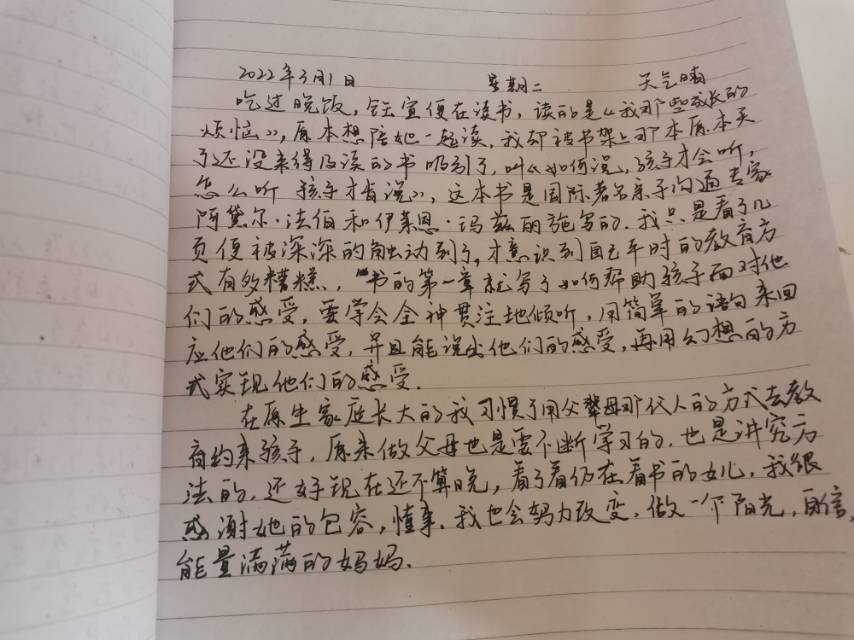 2022年3月1日 星期二 天气晴
吃过晚饭，钰宣便在读书，读的是《我那些成长的
烦恼》，原本想陪她一起读，我却被书架上那本原本买
了还没来得及读的书吸引了，叫《如何说，孩子才会听，
怎么听 孩子才肯说》，这本书是国际著名亲子沟通专家
阿黛尔·法伯和伊莱恩·玛兹丽施写的.我只是看了几
页便被深深的触动到了，才意识到自己平时的教育方
式有多糟糕，"书的第一章就写了如何帮助孩子面对他
们的感受，要学会全神贯注地倾听，用简单的语句来回
应他们的感受，并且能说出他们的感受，再用幻想的方
式实现他们的感受.
在原生家庭长大的我习惯了用父辈母那代人的方式去教
育约束孩子，原来做父母也是要不断学习的.也是讲究方
法的.还好现在还不算晚，看了看仍在看书的女儿，我很
感谢她的包容，懂事.我也会努力改变，做一个阳光，自信，
能量满满的妈妈.